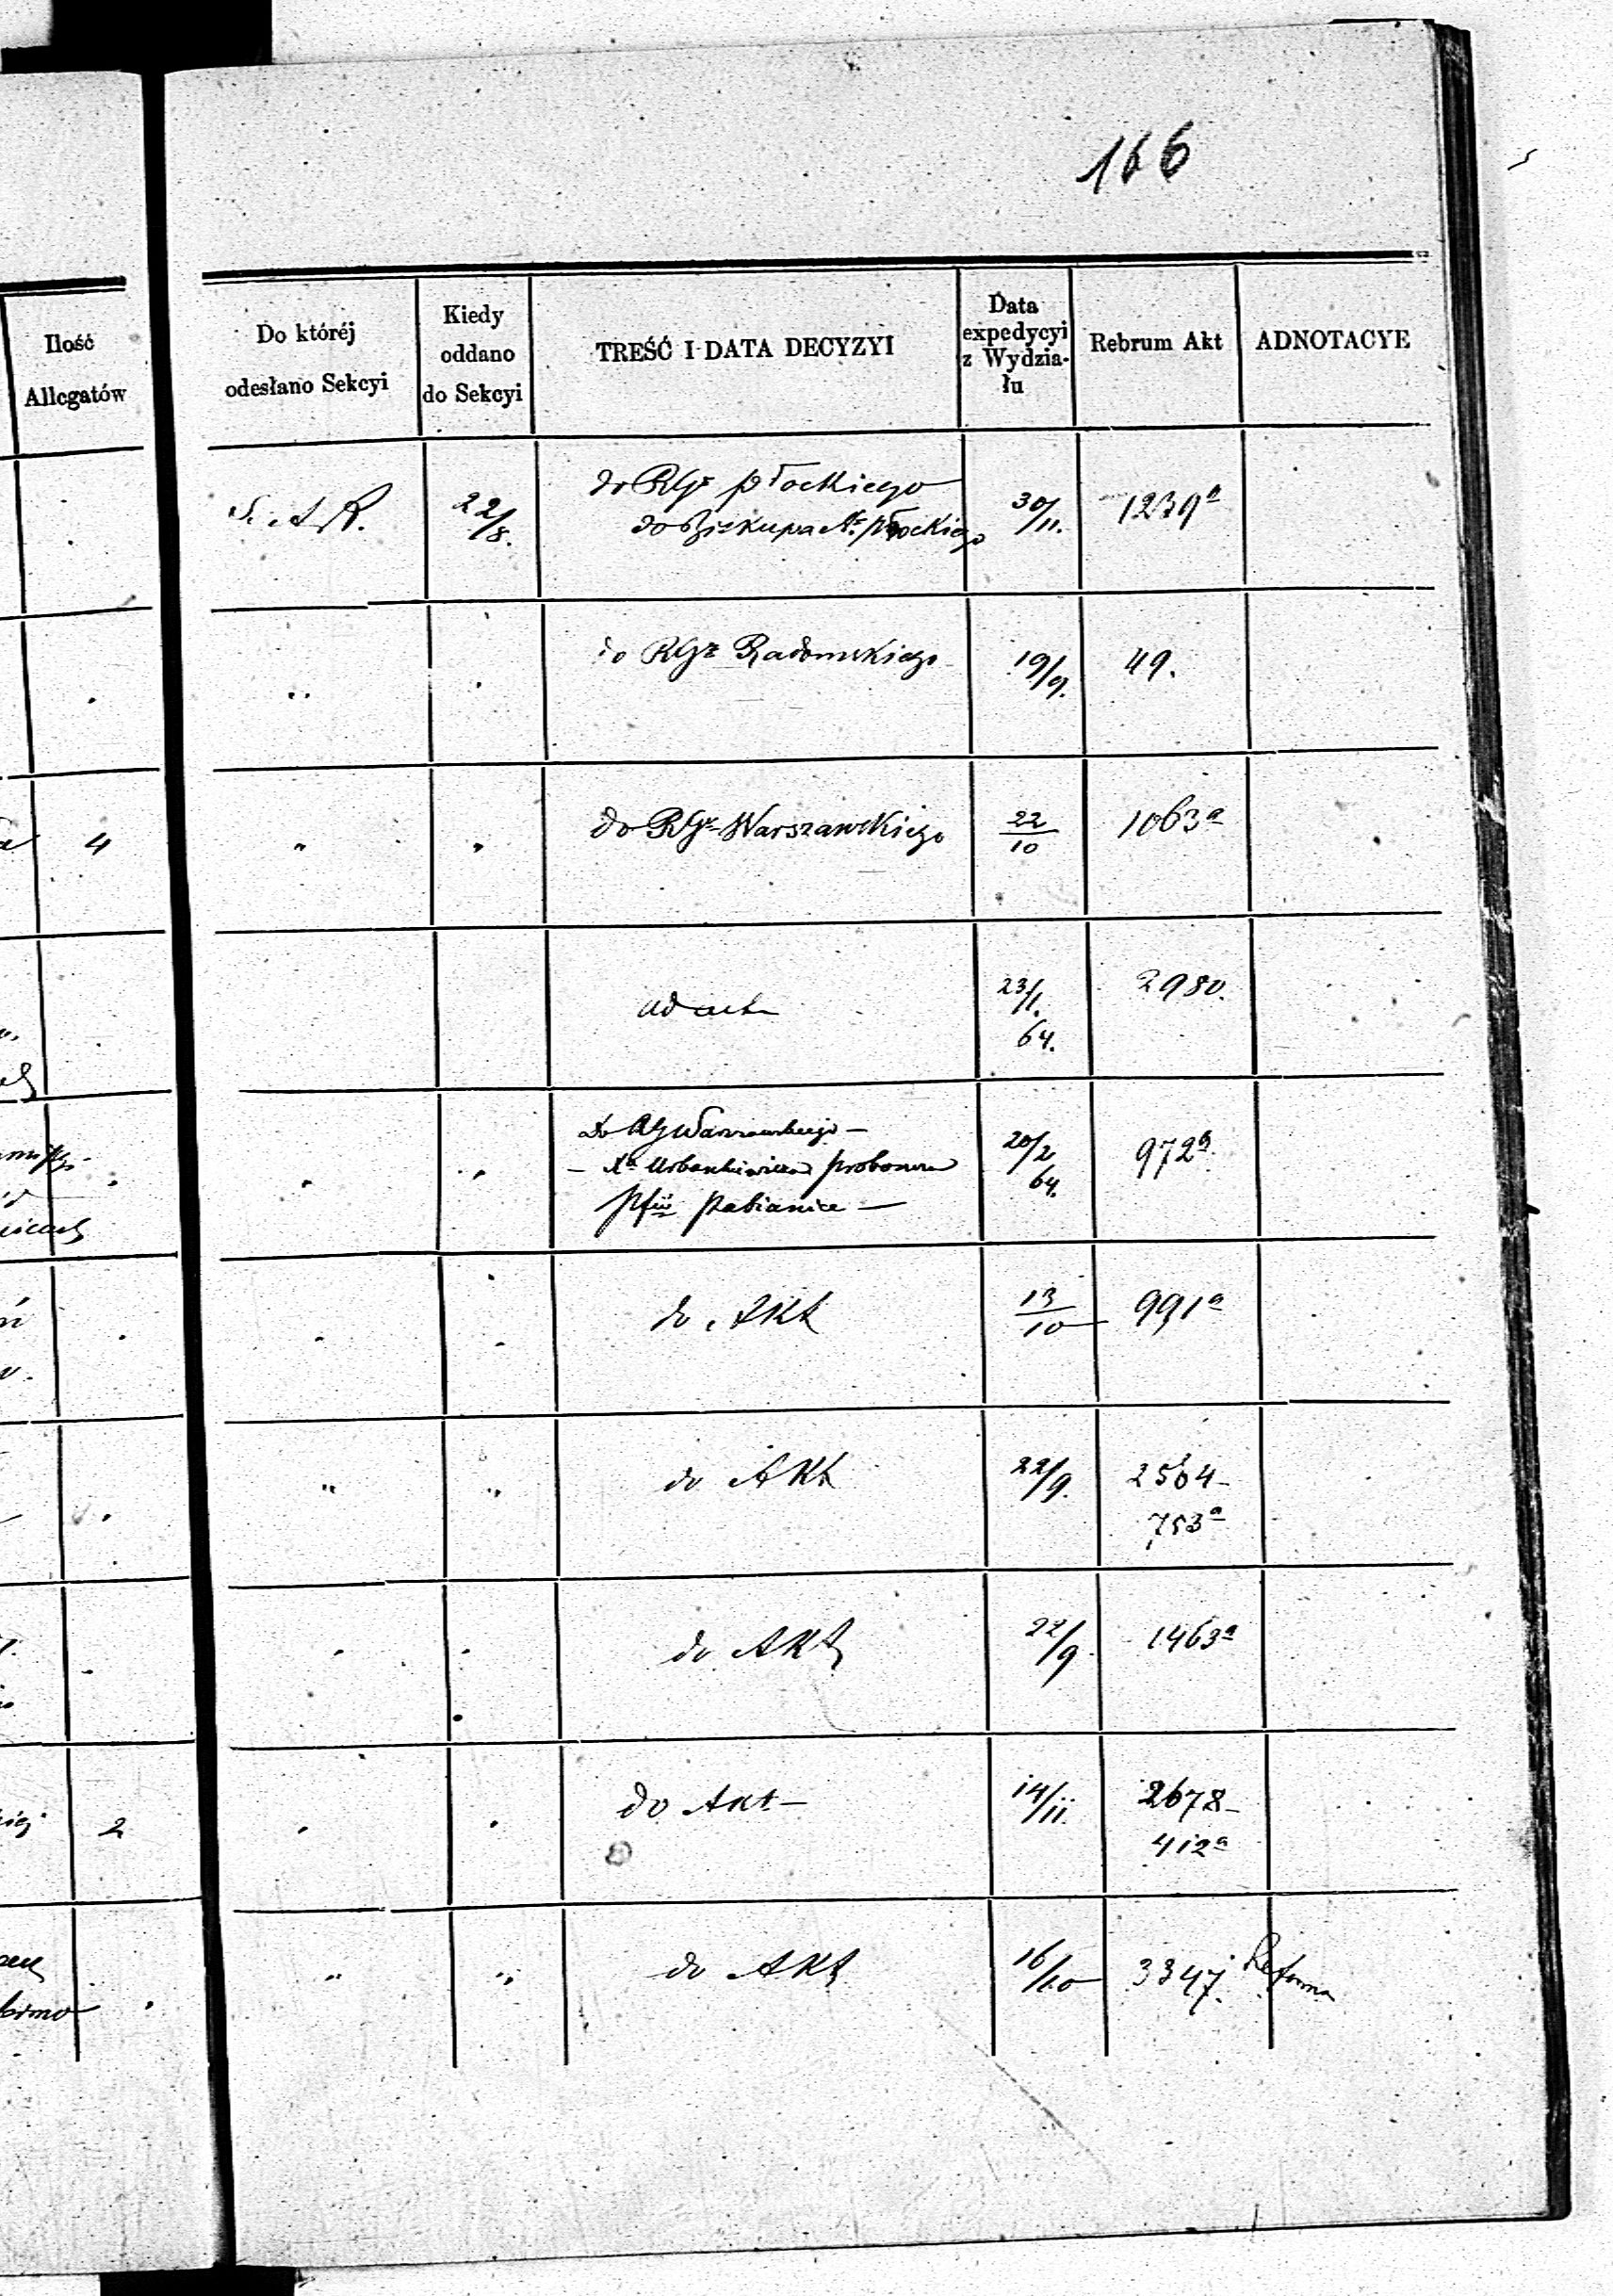 166
Ilość
Allegatów
Do któréj
odesłano Sekcyi
Kiedy
oddano
do Sekcyi
TREŚĆ I DATA DECYZYI
Data
expedycyi
z Wydzia-
łu
Rebrum Akt
ADNOTACYE
22/8.
do RGo płockiego
do Biskupa płockiego
30/11.
1239a
do RGo Radomskiego
19/9.
49.
4
"
"
do RGo Warszawskiego
22/10
1063a
ad acta
23/1.
64.
2980.
"
"
Do RG Warszawskiego —
— Xa Urbankiewicza proboszcza
pfii Pabianice —
20/2
64.
972a
do Akt
13/10
991a
"
"
do Akt
22/9.
2564-
753a
do Akt
22/9
1463a
2
do Akt —
14/11.
2678-
412a
"
"
do Akt
16/10
3347.
Reforma